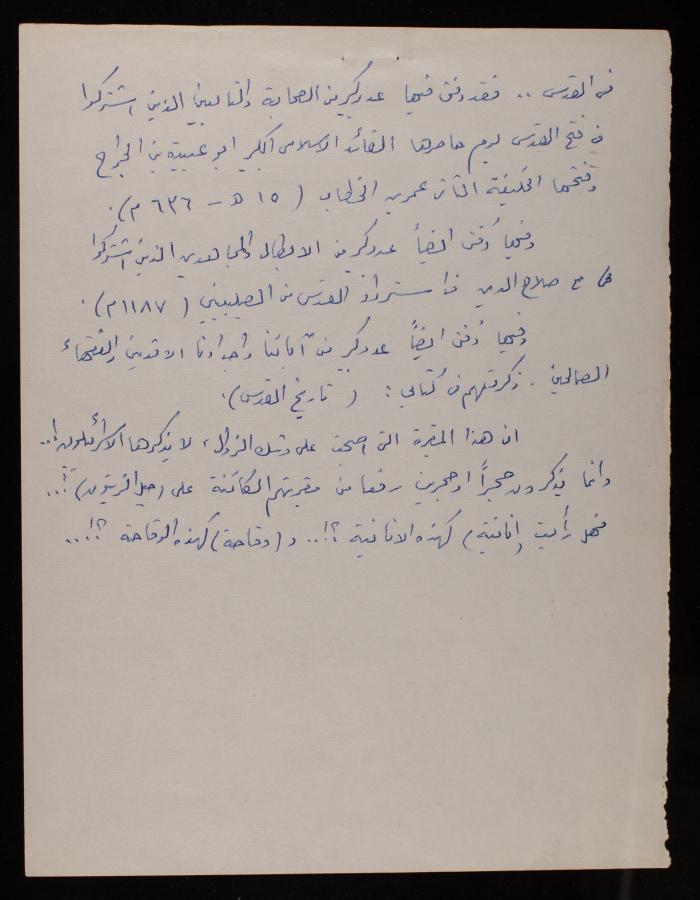 في القدس .. فقد دفن فيها عدد كبير من الصحابة والتابعين الذين اشتركوا
في فتح القدس يوم حاصرها القائد الاسلامي الكبير ابو عبيدة بن الجراح
وفتحها الخليفة الثاني عمر بن الخطاب ( ١٥ هـ - ٦٣٦ م ) .
وفيها دُفن ايضاً عدد كبير من الابطال والمجاهدين الذين اشتركوا
مع صلاح الدين في استرداد القدس من الصليبيين ( ١١٨٧ م ) .
وفيها دُفن ايضاً عدد كبير من آبائنا واجدادنا الاقدمين والفقهاء
الصالحين . ذكرتهم في كتابي : ( تاريخ القدس ) .
ان هذه المقبرة التي اصبحت على وشك الزوال ، لا يذكرها الاسرائيليون !..
وانما يذكرون حجراً او حجرين رفعا من مقبرتهم الكائنة على ( جبل الزيتون ) !...
فهل رأيت ( انانية ) كهذه الانانية ؟!.. و ( وقاحة ) كهذه الوقاحة ؟!...